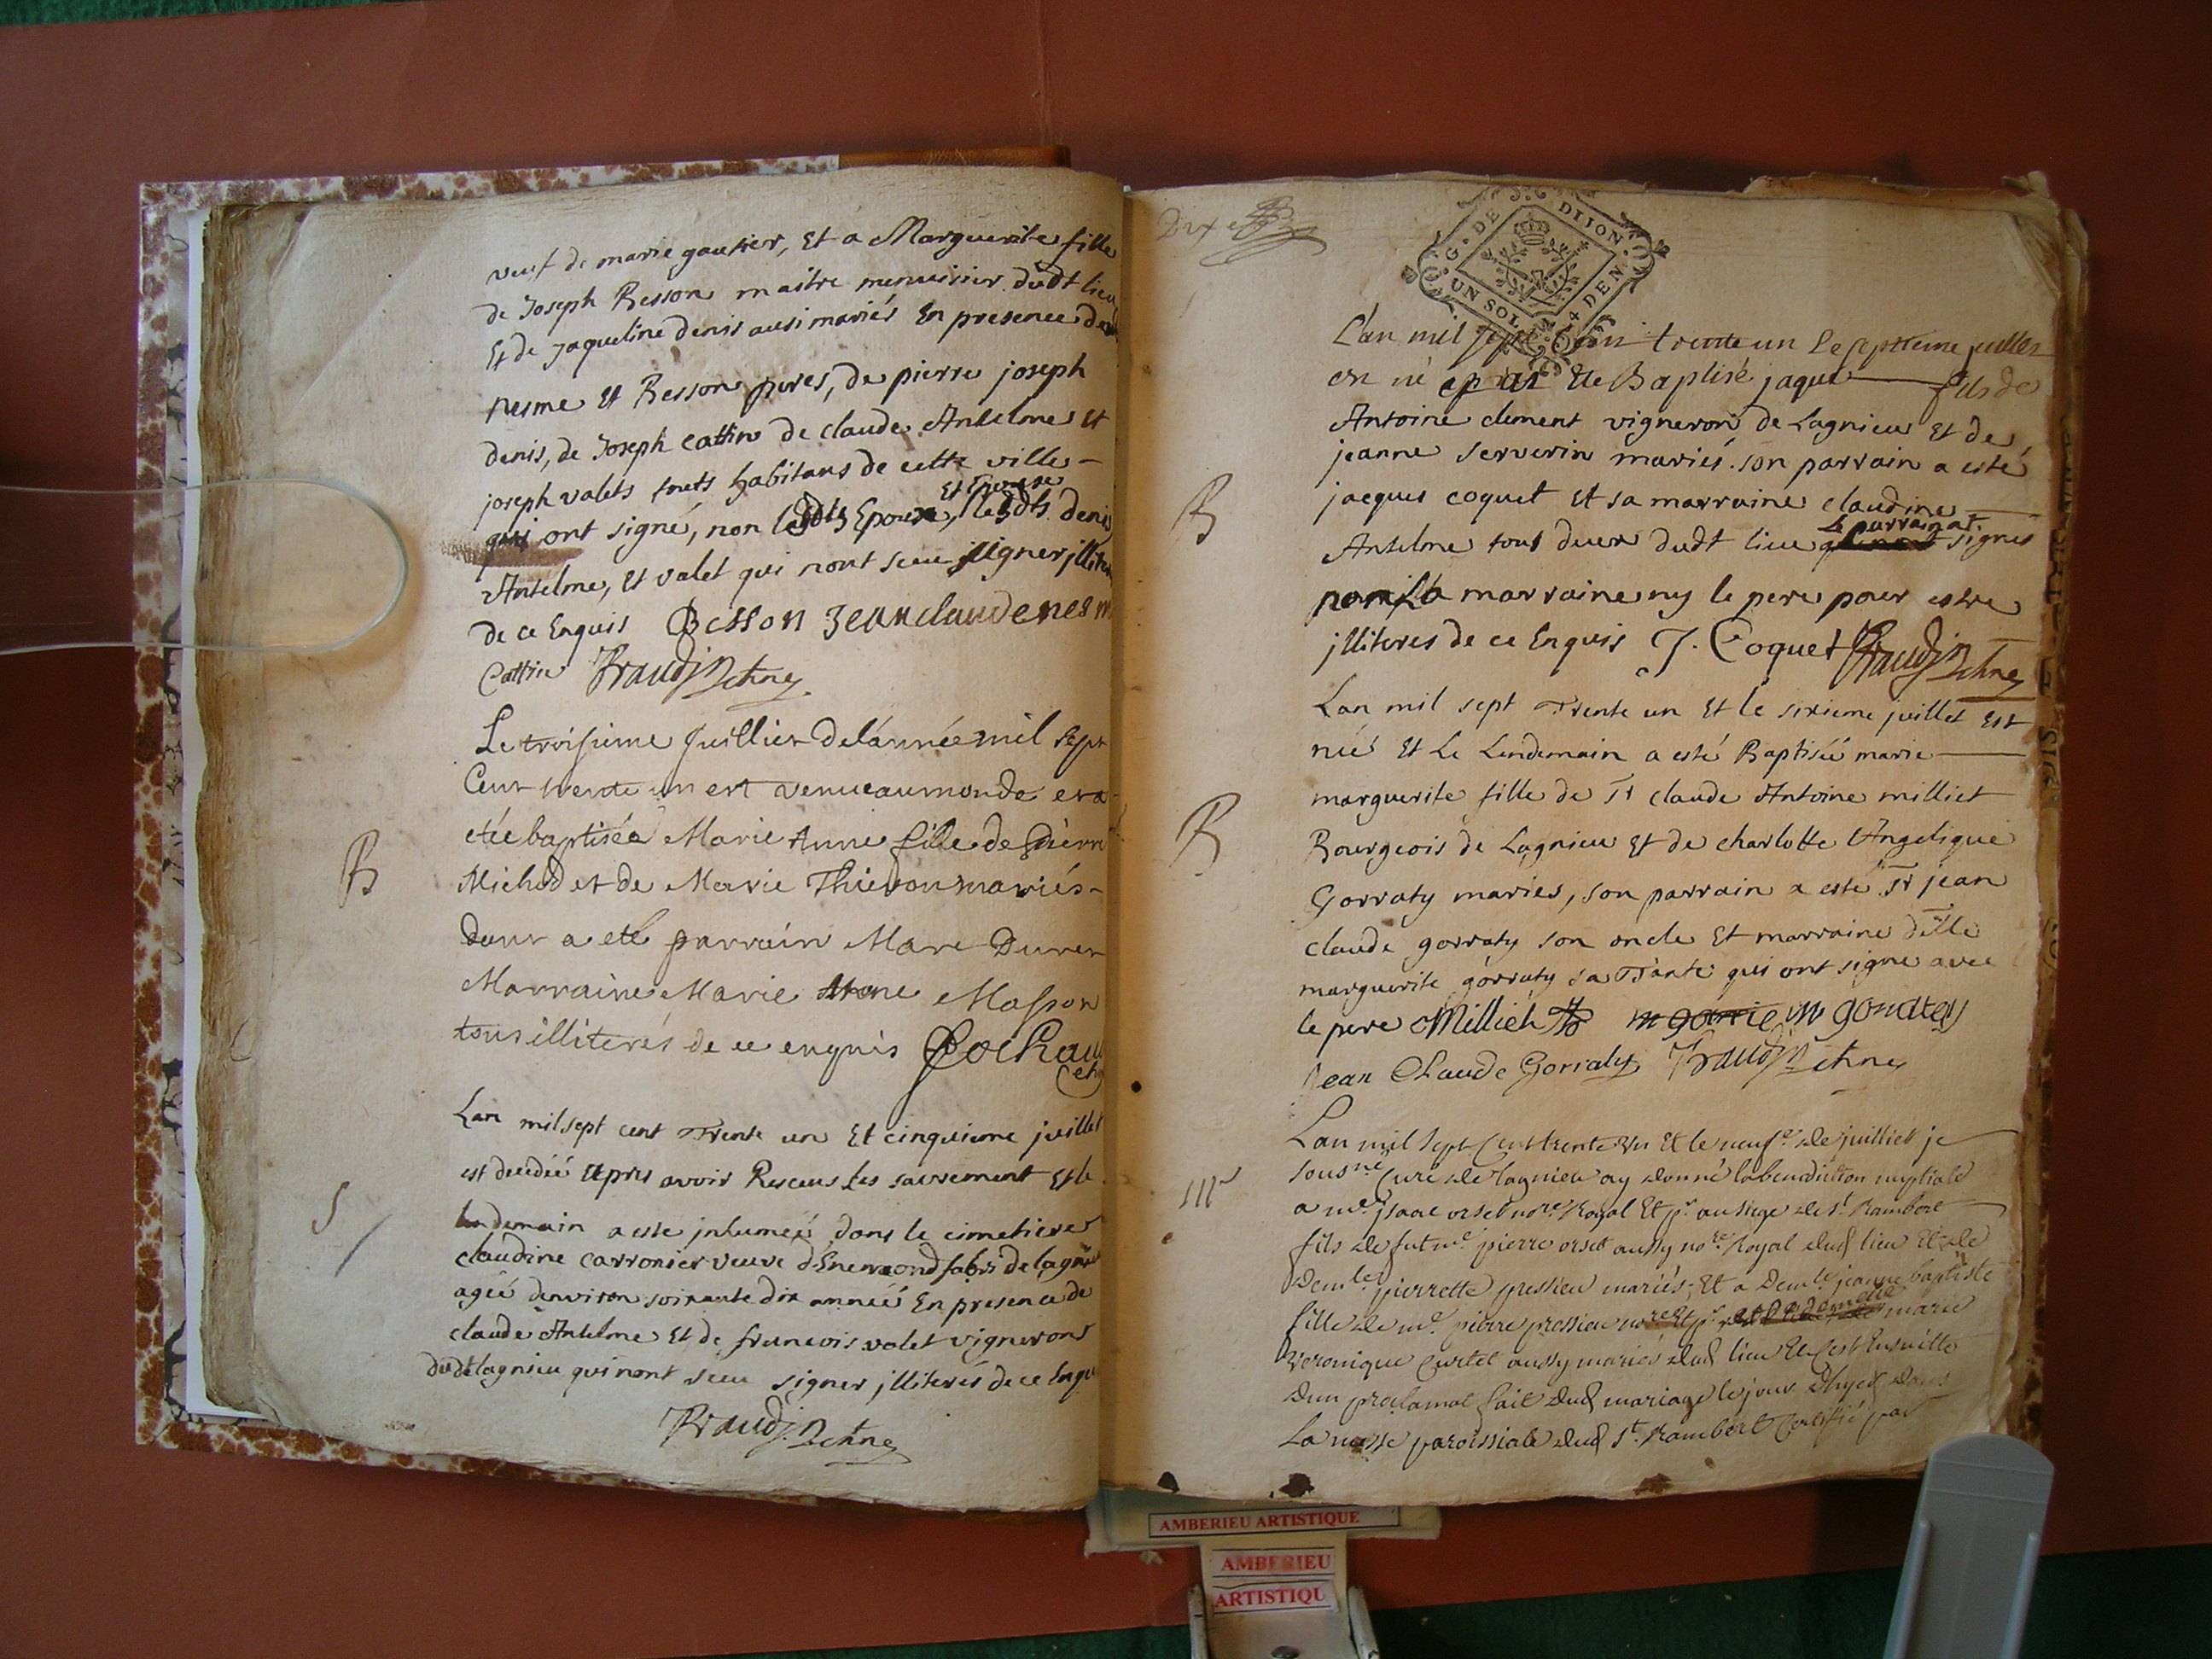 veuf de marie gautier, Et a Marguerite fille
de Joseph Besson maitre menuisier dudt lieu
Et de Jaqueline denis ausi mariés En presence des
nesme Et Besson peres, de pierre joseph
denis, de Joseph Cattin de claude Antelme et
joseph valets touts habitans de cette ville
Et Epouse
qui ont signé, non lesdts Epoux, lesdts denis
Antelme, Et valet qui nont sceu signer jlliteres
de ce Enquis Besson Jean claude nesm
Cattin Fraudj
Le troisieme Juillier de lannée mil sept
Cent trente un est venue au monde et a
etée baptisée Marie Anne fille de Pierre
Michod et de Marie Thievon mariés
dont a eté parrain Marc Duren
Marraine Marie Anne Masson
tous illiterés de ce enquis Cochau
Lan mil sept cent Trente un Et cinquieme juillet
est decedéé apres avoir Receus Les sacrement Et le
lendemain a este jnhumeé dans le cimetiere
claudine carronier veuve dEnemond fabri de lagnieu
ageé denviron soixante dix anneé En presence de
claude Antelme Et de francois valet vignerons
dudt lagnieu qui nont sceu signer jlliterés de ce Enqu
Fraudj
B
S
G. DE DIJON
UN SOL 4 DEN.
Lan mil sept Cent trente un Le septieme juillet
est né et a ete Baptisé jaque fils de
Antoine clement vigneron de Lagnieu Et de
jeanne Serverin mariés. son parrain a esté
jacques coquet Et sa marraine claudine
Le parrain a
Antelme tous deux dudt lieu signes
non La marraine ny le pere pour estre
jlliteres de ce Enquis J. Coquet Fraudj
Lan mil sept Trente un Et le sixieme juillet Est
néé Et Le Lendemain a esté Baptiséé marie
marguerite fille de Sr claude Antoine milliet
Bourgeois de Lagnieu Et de charlotte Angelique
Gorraty maries, son parrain a este Sr jean
claude gorraty son oncle Et marraine dlle
marguerite gorraty sa Tante qui ont signe avec
le pere Milliet
Jean Claude Gorraty Fraudj
Lan mil sept Cent trente un Et le neufe de juilliet je
sousne Curé de lagnieu ay donné la benediction nuptiale
a me. jsaac orset nore Royal Et pr. au siege de st. Rambert
fils de fut me. pierre orset aussy nore Royal dud lieu Et de
demle pierrette pressieu mariés, Et a Demle jeanne baptiste
fille de me. pierre pressieu nore Et pr. marie
Veronique Curtet aussy mariés dud lieu Et Cest Ensuitte
dun proclamat fait dud mariage le jour dhyer dans
La messe paroissiale dud St. Rambert Certifié par
B
B
AMBERIEU ARTISTIQUE
AMBERIEU
ARTISTIQU